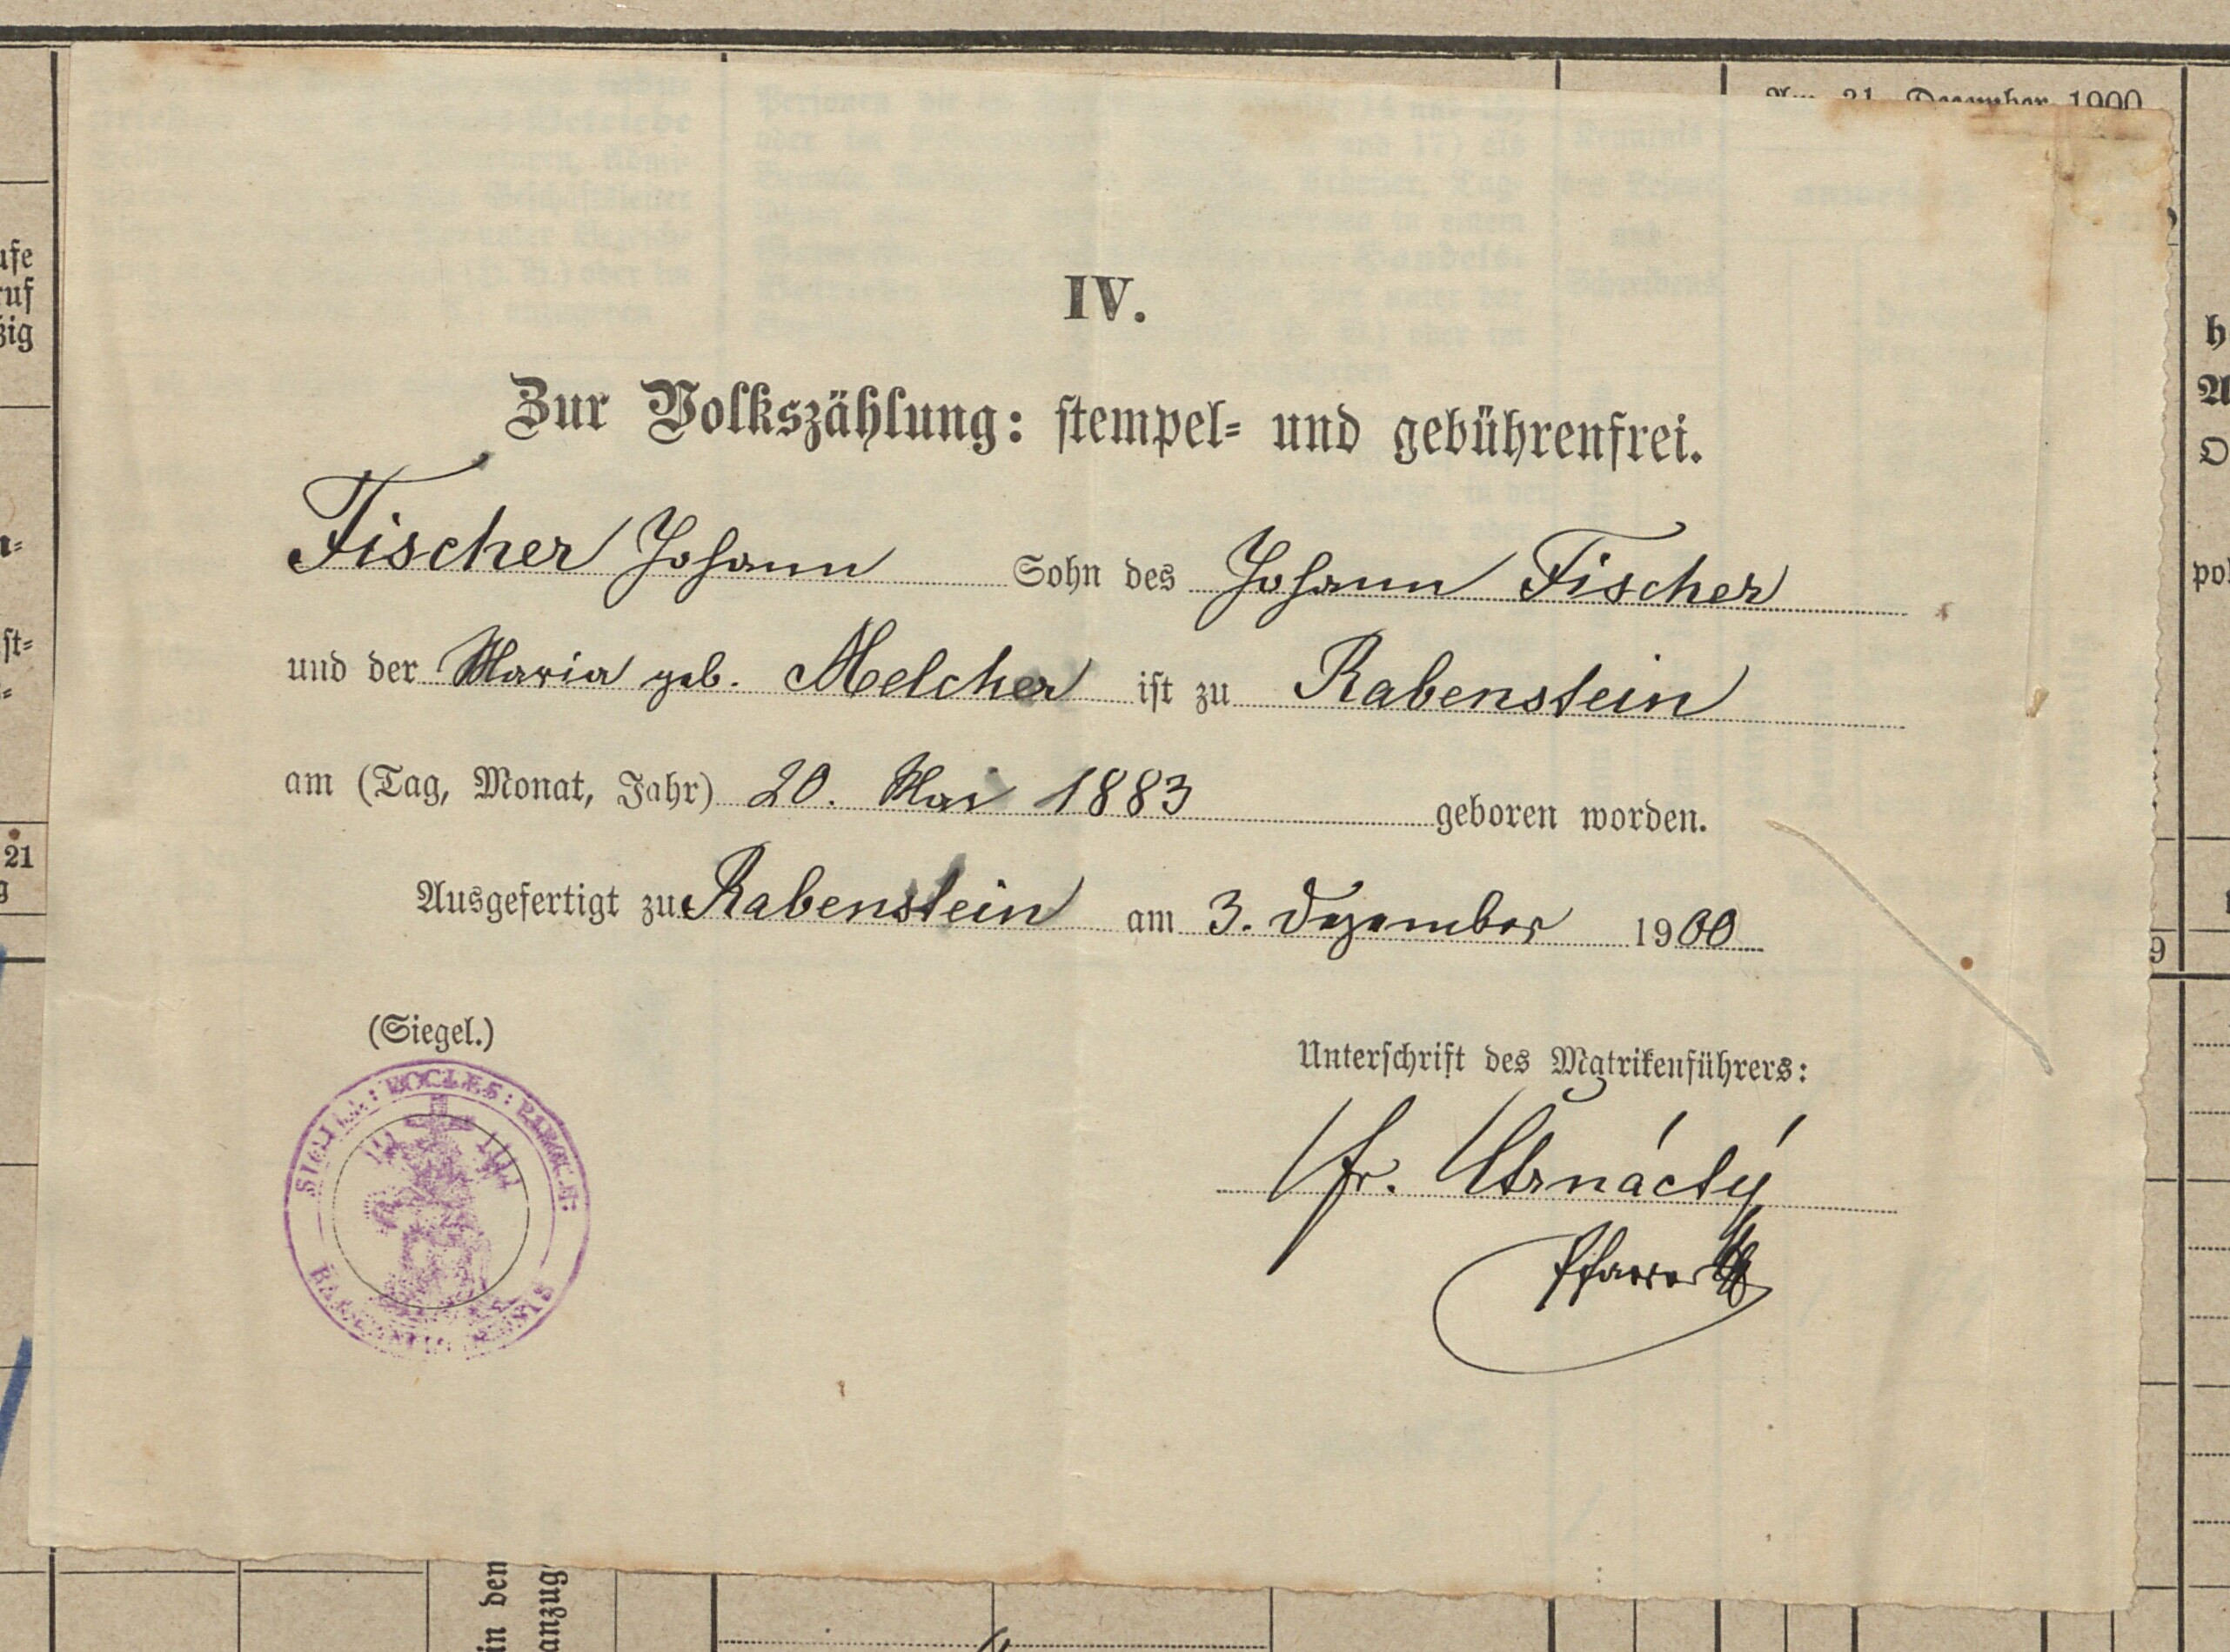 Am 31. December 1900
IV.
Zur Volkszählung: stempel- und gebührenfrei.
Fischer Johann Sohn des Johann Fischer
und der Maria geb. Melcher ist zu Rabenstein
am (Tag, Monat, Jahr) 20. Mai 1883 geboren worden.
Ausgefertigt zu Rabenstein am 3. Dezember 1900
(Siegel.)
Unterschrift des Matrikenführers:
Fr.
Pfarrer
21
9
in den
anzug